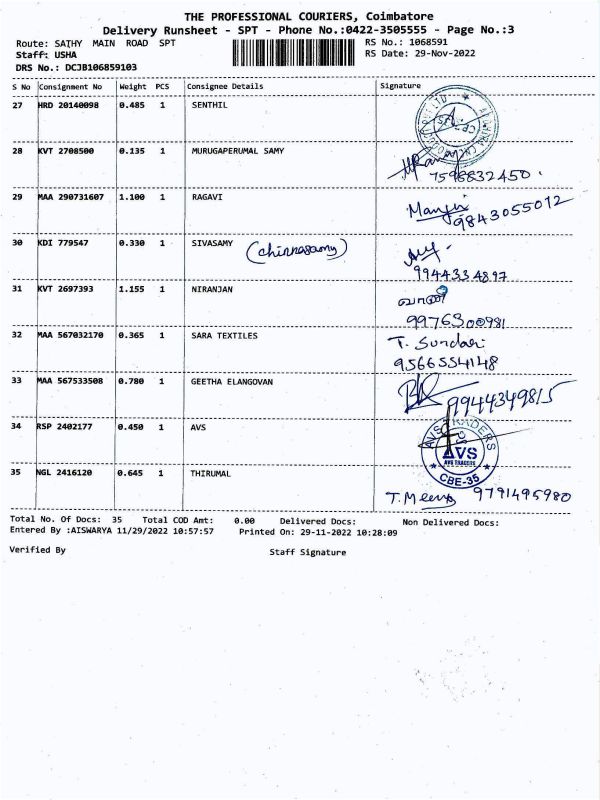 THE PROFESSIONAL COURIERS, Coimbatore
Delivery Runsheet - SPT - Phone No.:0422-3505555 - Page No.:3
Route: SATHY MAIN ROAD SPT RS No.: 1068591
Staff: USHA RS Date: 29-Nov-2022
DRS No.: DCJB106859103
S No Consignment No Weight PCS Consignee Details Signature
27 HRD 20140098 0.485 1 SENTHIL
28 KVT 2708500 0.135 1 MURUGAPERUMAL SAMY
7598832450
29 MAA 290731607 1.100 1 RAGAVI Manju
9843055012
30 KDI 779547 0.330 1 SIVASAMY (chinnasamy)
9944334897
31 KVT 2697393 1.155 1 NIRANJAN
9976300981
32 MAA 567032170 0.365 1 SARA TEXTILES T. Sundari
9566554148
33 MAA 567533508 0.780 1 GEETHA ELANGOVAN
9944349815
34 RSP 2402177 0.450 1 AVS
AVS TRADERS
AVS
AVS TRADERS
CBE-35
35 NGL 2416120 0.645 1 THIRUMAL
T. Meena 9791495980
Total No. Of Docs: 35 Total COD Amt: 0.00 Delivered Docs: Non Delivered Docs:
Entered By :AISWARYA 11/29/2022 10:57:57 Printed On: 29-11-2022 10:28:09
Verified By Staff Signature